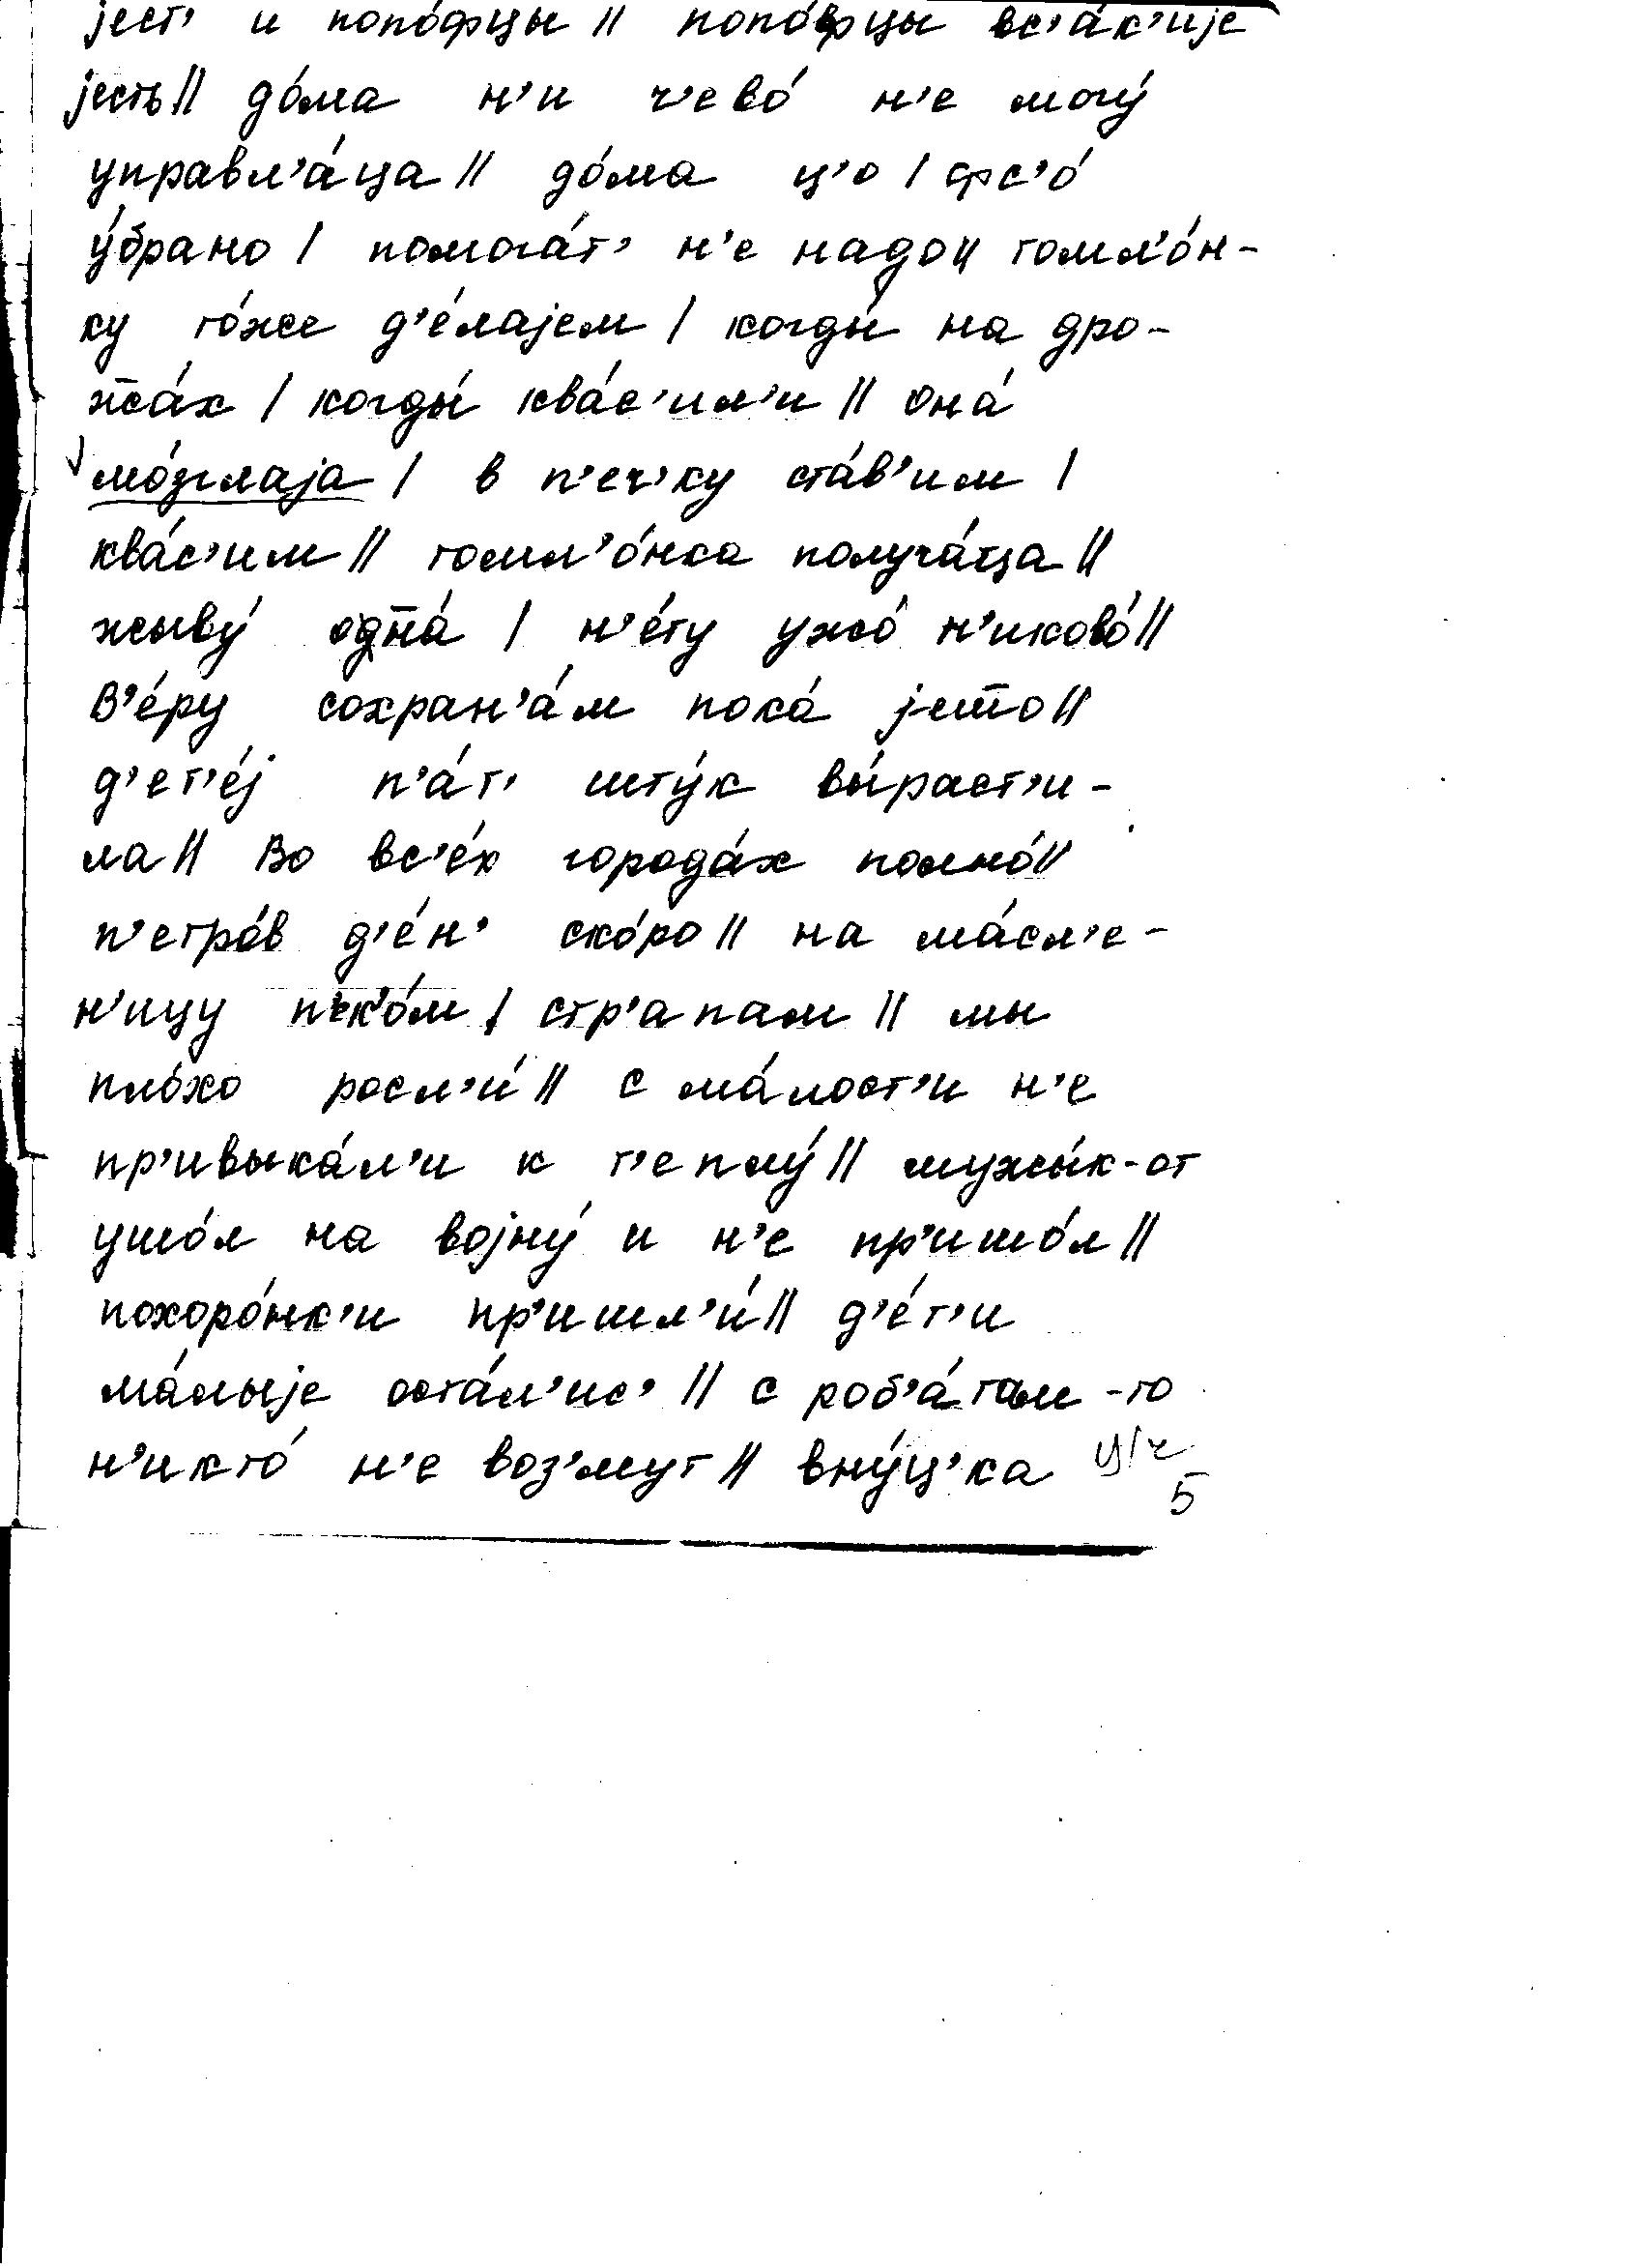 јест’ и попо́фцы || попо́вцы вс’а́к’ијe
јесть || до́ма н’и ч’ево́ н’е могу́
управл’а́ца || до́ма ц’о | фс’о́
у́брано | помога́т’ н’е надо || томл’о́н-
ку то́же д’е́лајем | когды́ на дро-
жжа́х | когды́ ква́с’ил’и || она́
мо́зглаја | в п’еч’ку ста́в’им |
ква́с’им || томл’о́нка получа́тца ||
жыву́ одна́ | н’е́ту ужо́ н’иково́ ||
В’е́ру сохран’а́м пока́ јешшо ||
д’ет’е́ј п’а́т’ шту́к вы́раст’и-
ла || Во вс’е́х города́х полно́ ||
п’етро́в д’е́н’ ско́ро || на ма́сл’е-
н’ицу п’ек’о́м | стр’апам || мы
пло́хо росл’и́ || с ма́лост’и н’е
пр’ивыка́л’и к т’еплу́ || мужы́к-от
ушо́л на војну́ и н’е пр’ишо́л ||
похоро́нк’и пр’ишл’и́ || д’е́т’и
ма́лыје оста́л’ис’ || с роб’а́там-то
н’икто́ н’е воз’мут || вну́ц’ка ц/ч
5